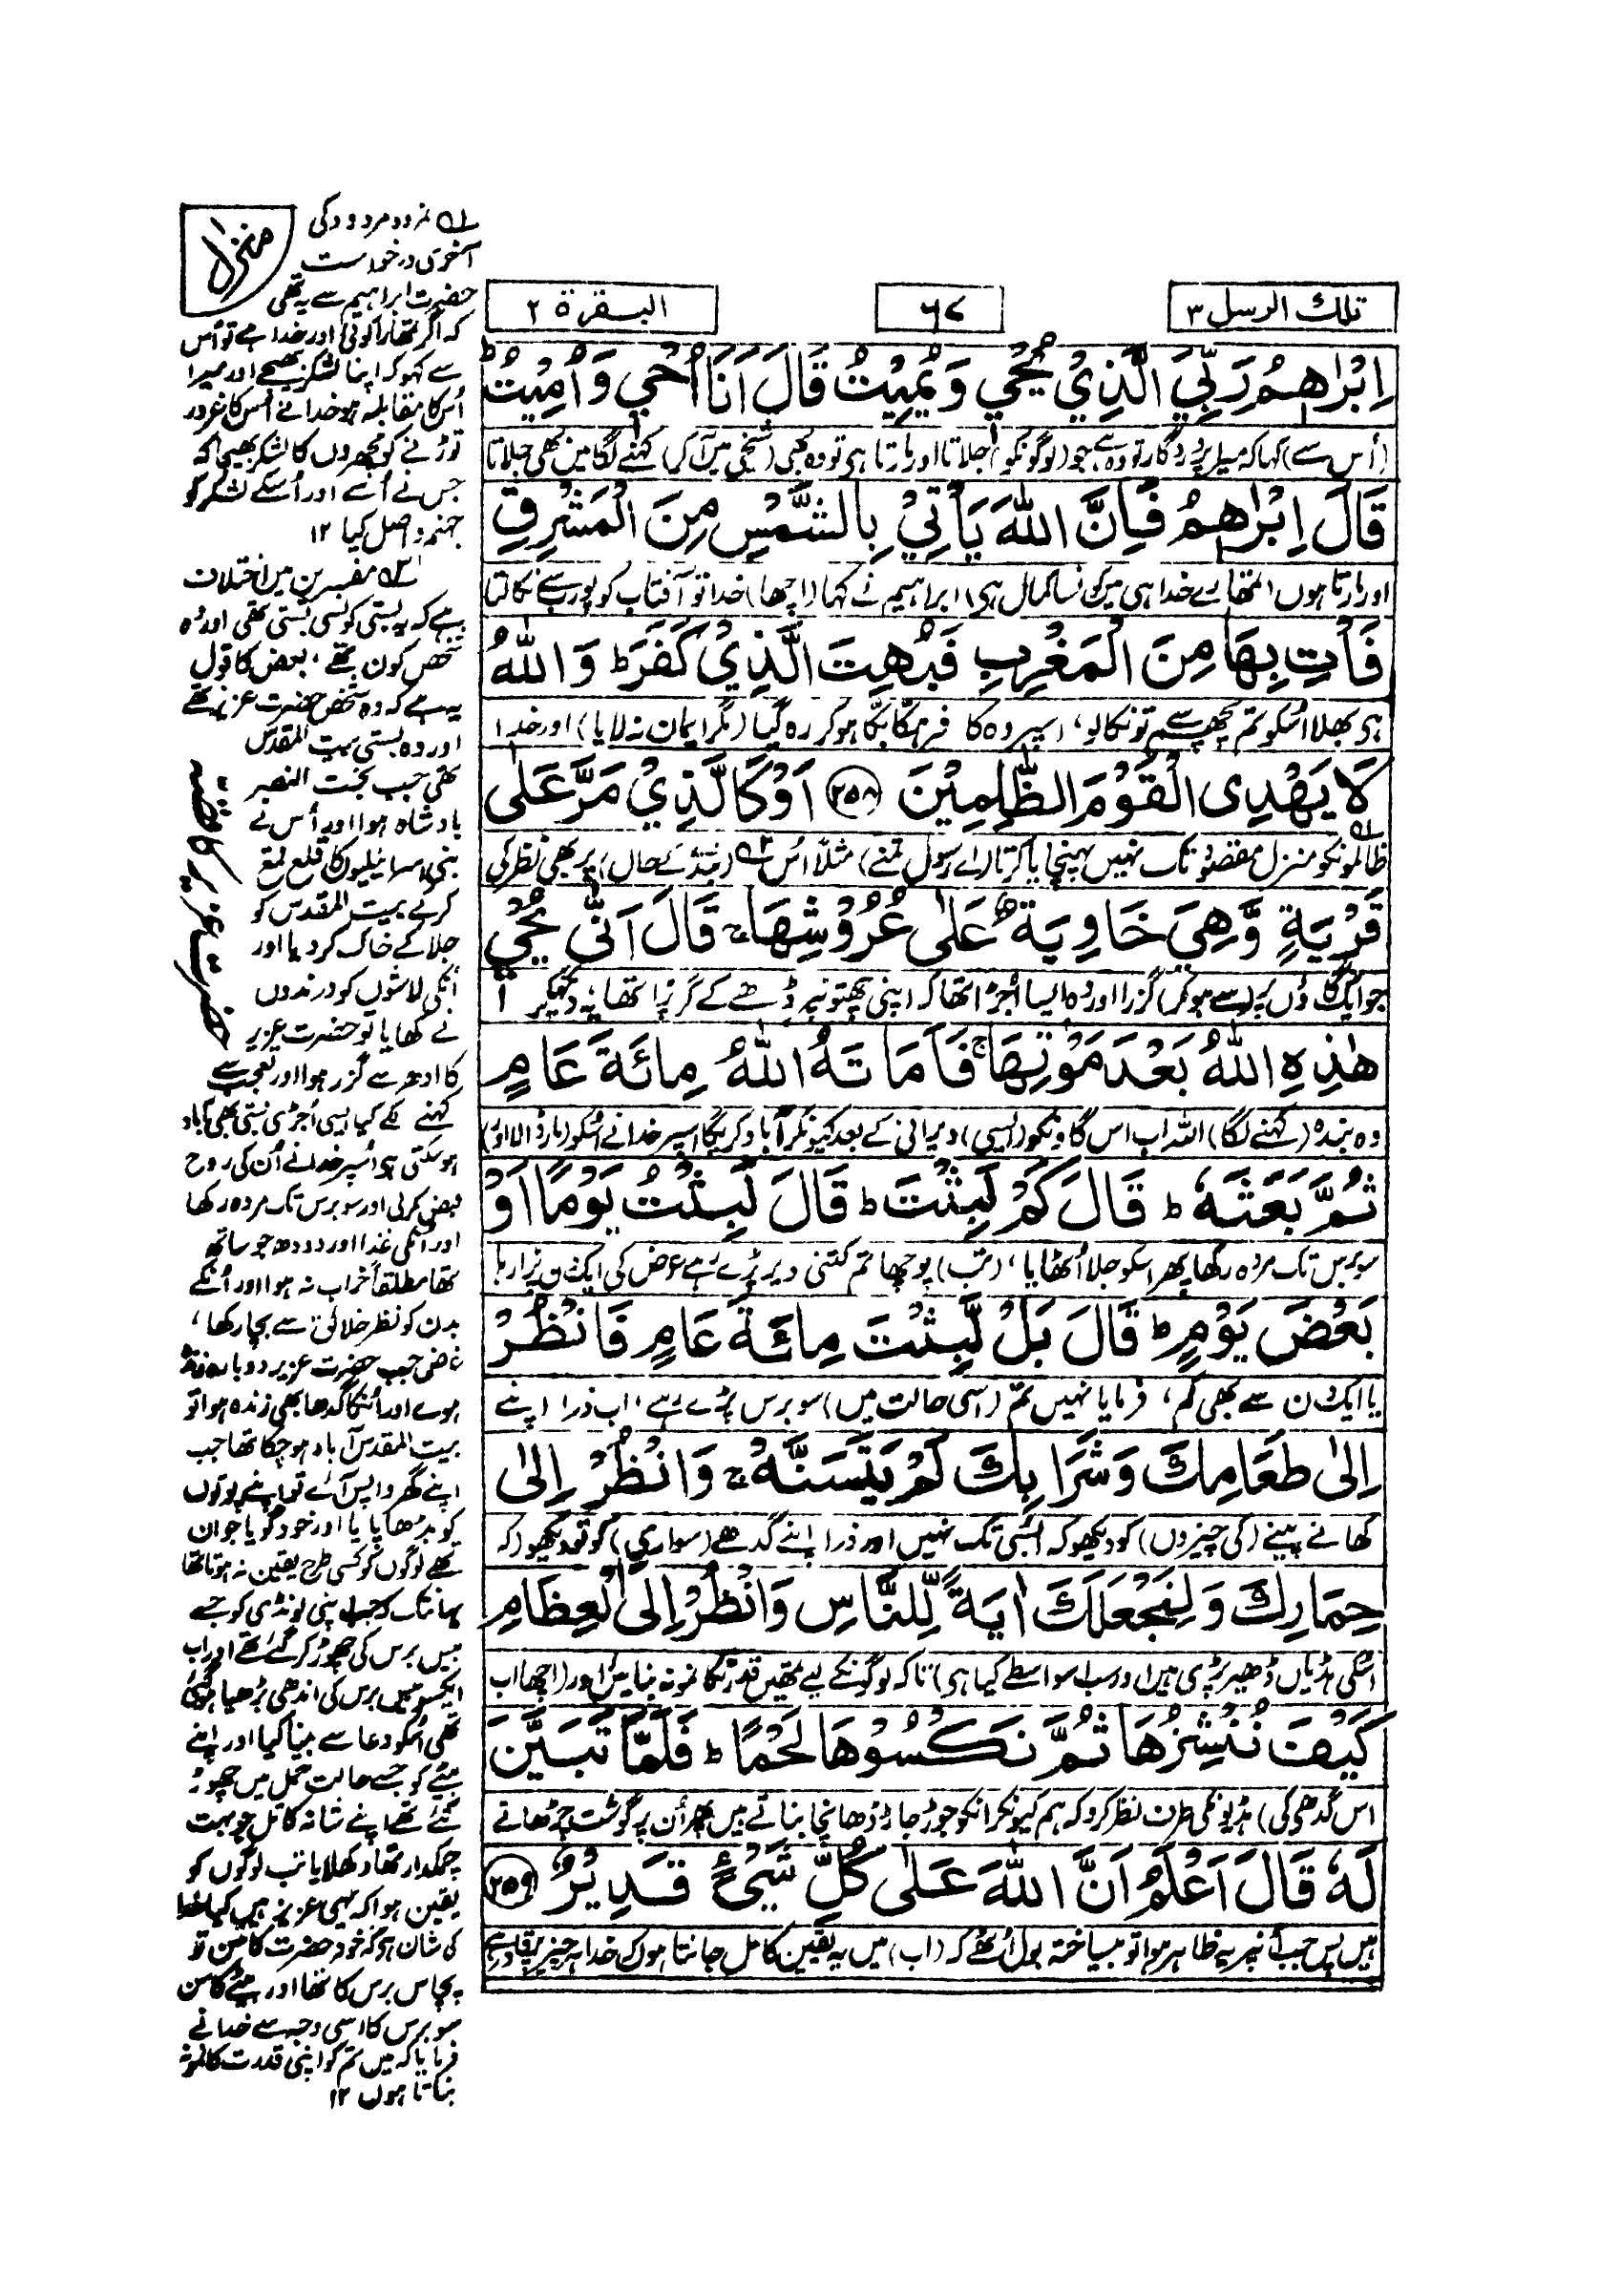 تلك الرسل ٣
٦٧
البقرة ٢
اِبْرٰهٖمُ رَبِّيَ الَّذِيْ يُحْيٖ وَيُمِيْتُ قَالَ اَنَا اُحْيٖ وَاُمِيْتُ ؕ
(اُس سے) کہا کہ میرا پروردگار تو وہ ہے جو (لوگونکو) جلاتا اور مارتا ہی تو وہ بھی (شیخی میں آ کر) کہنے لگا میں بھی جلاتا
قَالَ اِبْرٰهٖمُ فَاِنَّ اللّٰهَ يَاْتِيْ بِالشَّمْسِ مِنَ الْمَشْرِقِ
اور مارتا ہوں (تمھارے خدا ہی میں کونسا کمال ہی) ابراہیم نے کہا (اچھا) خدا تو آفتاب کو پورب سے نکالتا
فَاْتِ بِهَا مِنَ الْمَغْرِبِ فَبُهِتَ الَّذِيْ كَفَرَ ؕ وَاللّٰهُ
ہی بھلا اسکو تم پچھم سے تو نکالو، اسپر وہ کافر ہکا بکا ہو کر رہ گیا (مگر ایمان نہ لایا) اور خدا
لَا يَهْدِى الْقَوْمَ الظّٰلِمِيْنَ ﴿٢٥٨﴾ اَوْ كَالَّذِيْ مَرَّ عَلٰى
ظالمونکو منزل مقصود تک نہیں پہنچایا کرتا ؂۱ (اے رسول تمنے) مثلاً اُس ؂۲ (بندے کے حال) پر بھی نظر کی
قَرْيَةٍ وَّهِيَ خَاوِيَةٌ عَلٰى عُرُوْشِهَا ۚ قَالَ اَنّٰى يُحْيٖ
جو ایک گاؤں پر سے (ہو کر) گزرا اور وہ ایسا اُجڑا تھا کہ اپنی چھتونپر ڈھے کے گر پڑا تھا یہ دیکھکر
هٰذِهِ اللّٰهُ بَعْدَ مَوْتِهَا ۚ فَاَمَاتَهُ اللّٰهُ مِائَةَ عَامٍ
وہ بندہ (کہنے لگا) اللہ اب اس گاؤنکو (ایسی) ویرانی کے بعد کیونکر آباد کریگا اسپر خدا نے اُسکو (مار ڈالا اور)
ثُمَّ بَعَثَهٗ ؕ قَالَ كَمْ لَبِثْتَ ؕ قَالَ لَبِثْتُ يَوْمًا اَوْ
سو برس تک مردہ رکھا پھر اسکو جلا اُٹھایا، (تب) پوچھا تم کتنی دیر پڑے رہے عرض کی ایک دن پڑا رہا
بَعْضَ يَوْمٍ ؕ قَالَ بَلْ لَّبِثْتَ مِائَةَ عَامٍ فَانْظُرْ
یا ایک دن سے بھی کم، فرمایا نہیں تم (اسی حالت میں) سو برس پڑے رہے، اب ذرا اپنے
اِلٰى طَعَامِكَ وَشَرَابِكَ لَمْ يَتَسَنَّهْ ۚ وَانْظُرْ اِلٰى
کھانے پینے (کی چیزوں) کو دیکھو کہ اُبسی تک نہیں اور ذرا اپنے گدھے (سواری) کو تو دیکھو (کہ
حِمَارِكَ وَلِنَجْعَلَكَ اٰيَةً لِّلنَّاسِ وَانْظُرْ اِلَى الْعِظَامِ
اسکی ہڈیاں ڈھیر پڑی ہیں اور سب اسواسطے کیا ہی) تاکہ لوگونکے لیے تمھیں قدرت کا نمونہ بنائیں اور (اچھا اب
كَيْفَ نُنْشِزُهَا ثُمَّ نَكْسُوْهَا لَحْمًا ؕ فَلَمَّا تَبَيَّنَ
اس گدھی کی) ہڈیونکی طرف نظر کرو کہ ہم کیونکر انکو جوڑ جاڑ ڈھانچا بناتے ہیں پھر اُن پر گوشت چڑھاتے
لَهٗ قَالَ اَعْلَمُ اَنَّ اللّٰهَ عَلٰى كُلِّ شَيْءٍ قَدِيْرٌ ﴿٢٥٩﴾
ہیں پس جب اُنپر یہ ظاہر ہوا تو بیساختہ بول اُٹھے کہ (اب) میں یہ یقین کامل جانتا ہوں کہ خدا ہر چیز پر قادر ہے
منزل ۱
؂۱ نمرود مردود کی
آخری درخواست
حضرت ابراہیم سے یہ تھی
کہ اگر تمھارا کوئی اور خدا ہے تو اُس
سے کہو کہ اپنا لشکر بھیجے اور میرا
اُس کا مقابلہ ہو خدا نے اُس کا غرور
توڑنے کو مچھروں کا لشکر بھیجا کہ
جس نے اُسے اور اُسکے لشکر کو
جہنم واصل کیا ۱۲
؂۲ مفسرین میں اختلاف
ہے کہ یہ بستی کونسی بستی تھی اور وہ
شخص کون تھے، بعض کا قول
یہ ہے کہ وہ شخص حضرت عزیر تھے
اور وہ بستی بیت المقدس
تھی جب بخت النصر
بادشاہ ہوا اور اُس نے
بنی اسرائیلیوں کا قلع قمع
کرکے بیت المقدس کو
جلا کے خاک کر دیا اور
اُنکی لاشوں کو درندوں
نے کھایا تو حضرت عزیر
کا ادھر سے گزر ہوا اور تعجب سے
کہنے لگے کیا ایسی اُجڑی بستی بھی آباد
ہو سکتی ہی اُسپر خدا نے اُن کی روح
قبض کر لی اور سو برس تک مردہ رکھا
اور اُنکی غذا اور دودھ جو ساتھ
تھا مطلقاً خراب نہ ہوا اور اُنکے
بدن کو نظر خلائق سے بچا رکھا،
غرض جب حضرت عزیر دوبارہ زندہ
ہوے اور اُنکا گدھا بھی زندہ ہوا تو
بیت المقدس آباد ہو چکا تھا جب
اپنے گھر واپس آئے تو اپنے پوتوں
کو بڈھا پایا اور خود گویا جوان
تھے لوگوں کو کسی طرح یقین نہ ہوتا تھا
یہانتک کہ جب اپنی لونڈی کو جسے
بیس برس کی چھوڑ کر گئے تھے اور اب
ایکسو بیس برس کی اندھی بڑھیا ہو گئی
تھی اُسکو دعا سے بینا کیا اور اپنے
بیٹے کو جسے حالت حمل میں چھوڑ
گئے تھے اپنے شانہ کا تل جو بہت
چمکدار تھا دکھلایا تب لوگوں کو
یقین ہوا کہ یہی عزیر ہیں کیا خدا
کی شان ہی کہ خود حضرت کا سن تو
پچاس برس کا تھا اور بیٹے کا سن
سو برس کا اسی وجہ سے خدا نے
فرمایا کہ میں تم کو اپنی قدرت کا نمونہ
بناتا ہوں ۱۲
حضرت عزیر کا قصہ